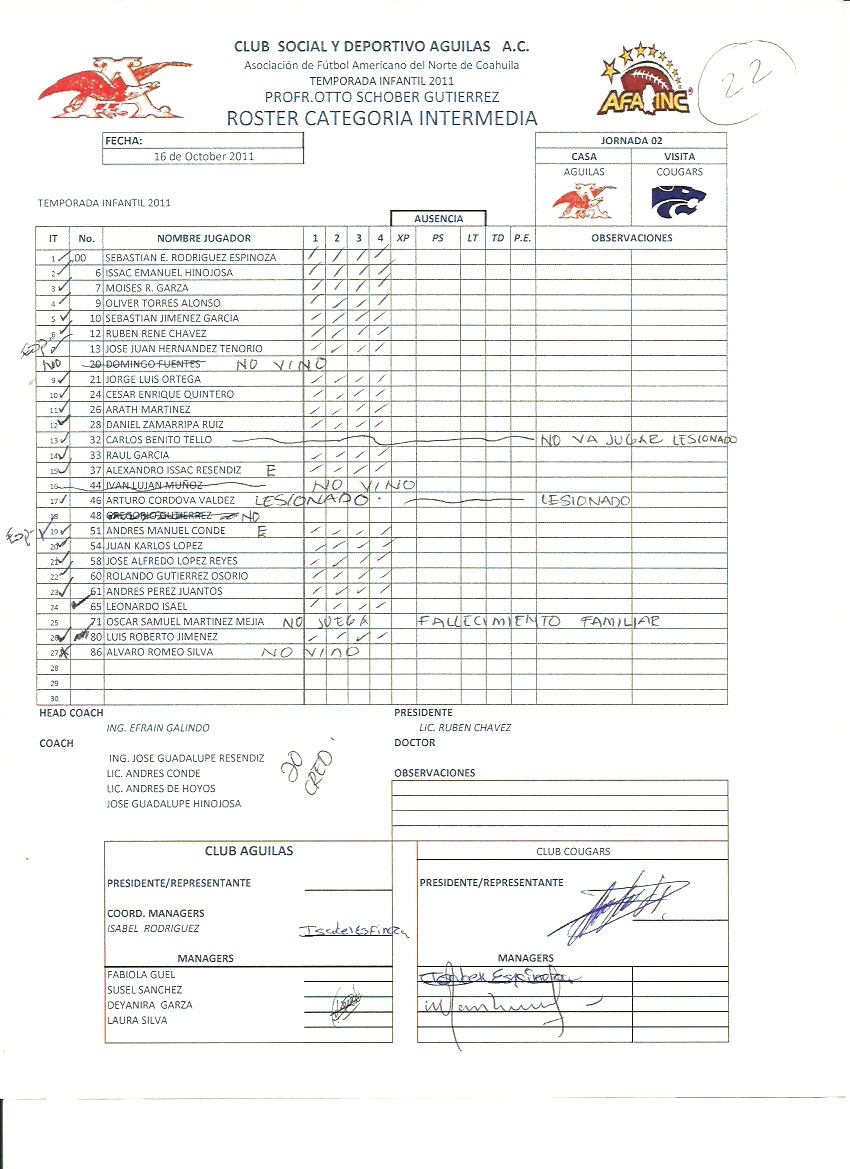 CLUB SOCIAL Y DEPORTIVO AGUILAS A.C.
Asociación de Fútbol Americano del Norte de Coahuila
TEMPORADA INFANTIL 2011
PROFR.OTTO SCHOBER GUTIERREZ
ROSTER CATEGORIA INTERMEDIA
AFAINC
22
FECHA:
16 de October 2011
JORNADA 02
CASA VISITA
AGUILAS COUGARS
TEMPORADA INFANTIL 2011
AUSENCIA
IT No. NOMBRE JUGADOR 1 2 3 4 XP PS LT TD P.E. OBSERVACIONES
1 00 SEBASTIAN E. RODRIGUEZ ESPINOZA
2 6 ISSAC EMANUEL HINOJOSA
3 7 MOISES R. GARZA
4 9 OLIVER TORRES ALONSO
5 10 SEBASTIAN JIMENEZ GARCIA
6 12 RUBEN RENE CHAVEZ
13 JOSE JUAN HERNANDEZ TENORIO
NO 20 DOMINGO FUENTES NO VINO
9 21 JORGE LUIS ORTEGA
10 24 CESAR ENRIQUE QUINTERO
11 26 ARATH MARTINEZ
12 28 DANIEL ZAMARRIPA RUIZ
13 32 CARLOS BENITO TELLO NO VA JUGAR LESIONADO
14 33 RAUL GARCIA
15 37 ALEXANDRO ISSAC RESENDIZ E
16 44 IVAN LUJAN MUÑOZ NO VINO
17 46 ARTURO CORDOVA VALDEZ LESIONADO LESIONADO
18 48 GREGORIO GUTIERREZ NO
19 51 ANDRES MANUEL CONDE E
20 54 JUAN KARLOS LOPEZ
21 58 JOSE ALFREDO LOPEZ REYES
22 60 ROLANDO GUTIERREZ OSORIO
23 61 ANDRES PEREZ JUANTOS
24 65 LEONARDO ISAEL
25 71 OSCAR SAMUEL MARTINEZ MEJIA NO JUEGA FALLECIMIENTO FAMILIAR
26 80 LUIS ROBERTO JIMENEZ
27 86 ALVARO ROMEO SILVA NO VINO
28
29
30
HEAD COACH PRESIDENTE
ING. EFRAIN GALINDO LIC. RUBEN CHAVEZ
COACH DOCTOR
ING. JOSE GUADALUPE RESENDIZ
LIC. ANDRES CONDE
LIC. ANDRES DE HOYOS
JOSE GUADALUPE HINOJOSA
20
CRED
OBSERVACIONES
CLUB AGUILAS CLUB COUGARS
PRESIDENTE/REPRESENTANTE PRESIDENTE/REPRESENTANTE
COORD. MANAGERS
ISABEL RODRIGUEZ
MANAGERS MANAGERS
FABIOLA GUEL
SUSEL SANCHEZ
DEYANIRA GARZA
LAURA SILVA